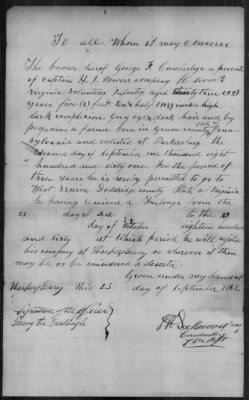 To all whom it may concern
The bearer hereof George F Cumberledge a private
of Captain H. J. Bowers company
Virginia Volunteer Infantry aged
years five (5) feet ten & half inches high
dark complexion, Gray eyes, dark hair and by
profession a farmer born in Green county Penn
sylvania and enlisted at Parkersburg the
second day of September one thousand eight
hundred and sixty one. For the period of
three years he is now permitted to go to
West Union Doddridge county State of Virginia
he having received a Furlough from the
23 day of to the
day of October eighteen hundred
and sixty at which period he will rejoin
his company at Harpers Ferry or wherever it then
may be or be considered a deserter.
Given under my hand at
Harpers Ferry this 23 day of September 1862
Signature of the officer
Giving the Furlough
Commanding